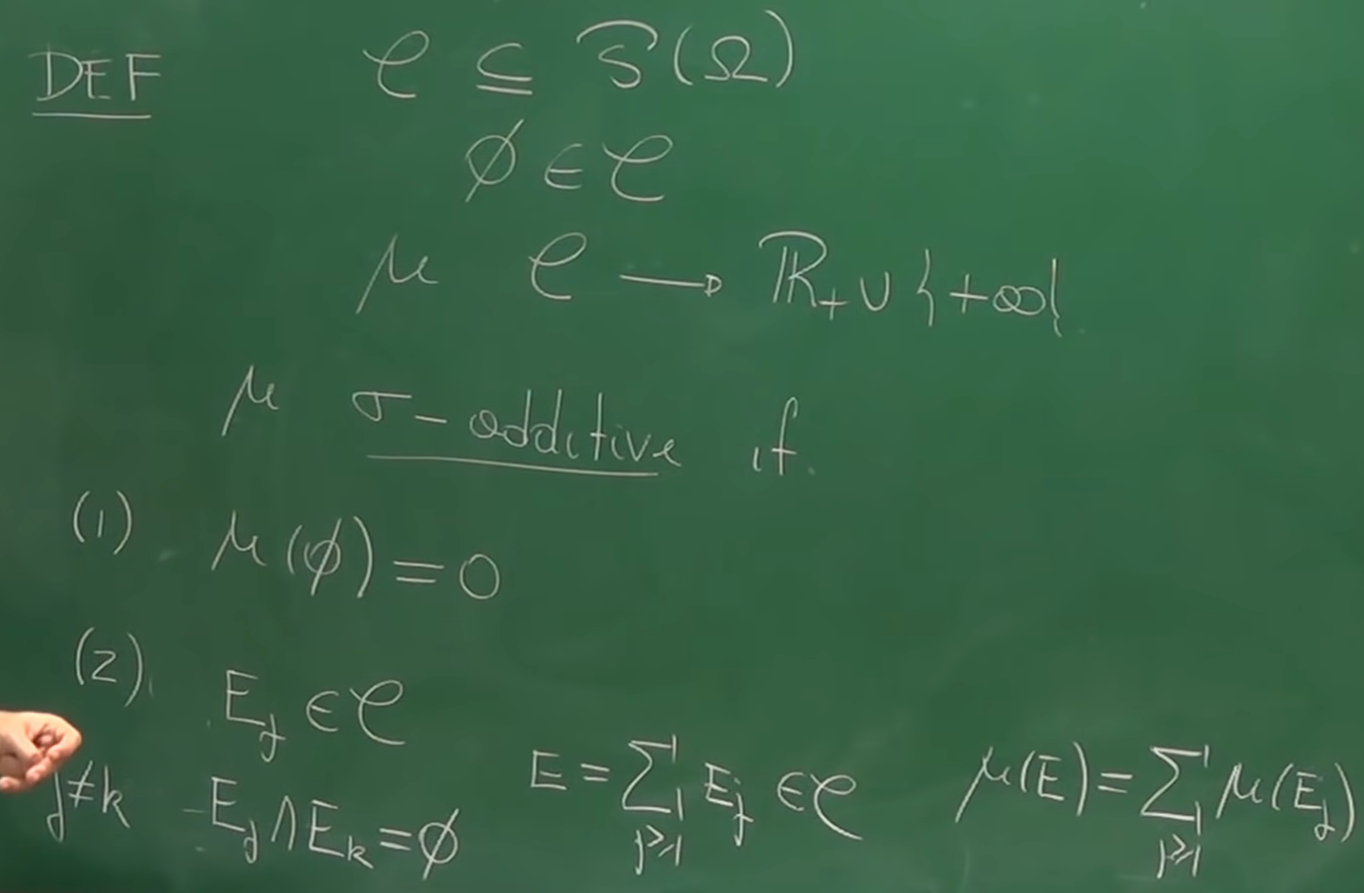 DEF 𝒞 ⊆ 𝒫(Ω)
∅ ∈ 𝒞
μ 𝒞 → ℝ₊ ∪ {+∞}
μ σ-additive if
(1) μ(∅) = 0
(2) E_j ∈ 𝒞
j≠k E_j ∩ E_k = ∅ E = ∑_{j≥1} E_j ∈ 𝒞 μ(E) = ∑_{j≥1} μ(E_j)